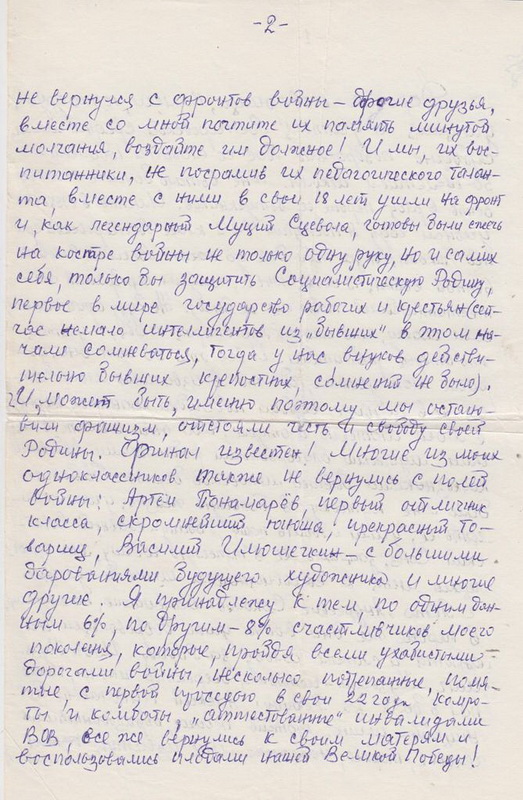 -2-
не вернулся с фронтов войны – дорогие друзья,
вместе со мной почтите их память минутой
молчания, воздайте им должное! И мы, их вос-
питанники, не посрамив их педагогического талан-
та, вместе с ними в свои 18 лет ушли на фронт
и, как легендарный Муций Сцевола, готовы были сжечь
на костре войны не только одну руку, но и самих
себя, только бы защитить Социалистическую Родину,
первое в мире государство рабочих и крестьян (сей-
час немало интеллигентов из „бывших" в этом на-
чали сомневаться, тогда у нас внуков действи-
тельно бывших крепостных, сомнений не было).
И, может быть, именно поэтому мы остано-
вили фашизм, отстояли честь и свободу своей
Родины. Финал известен! Многие из моих
одноклассников также не вернулись с полей
войны: Артём Понамарёв, первый отличник
класса, скромнейший юноша, прекрасный то-
варищ, Василий Илюшечкин – с большими
дарованиями будущего художника и многие
другие. Я принадлежу к тем, по одним дан-
ным 6%, по другим – 8% счастливчиков моего
поколения, которые, пройдя всеми ухабистыми
дорогами войны, несколько потрёпанные, помя-
тые, с первой проседью в свои 22 года комро-
ты и комбаты, „аттестованные" инвалидами
ВОВ, все же вернулись к своим матерям и
воспользовались плодами нашей Великой Победы!